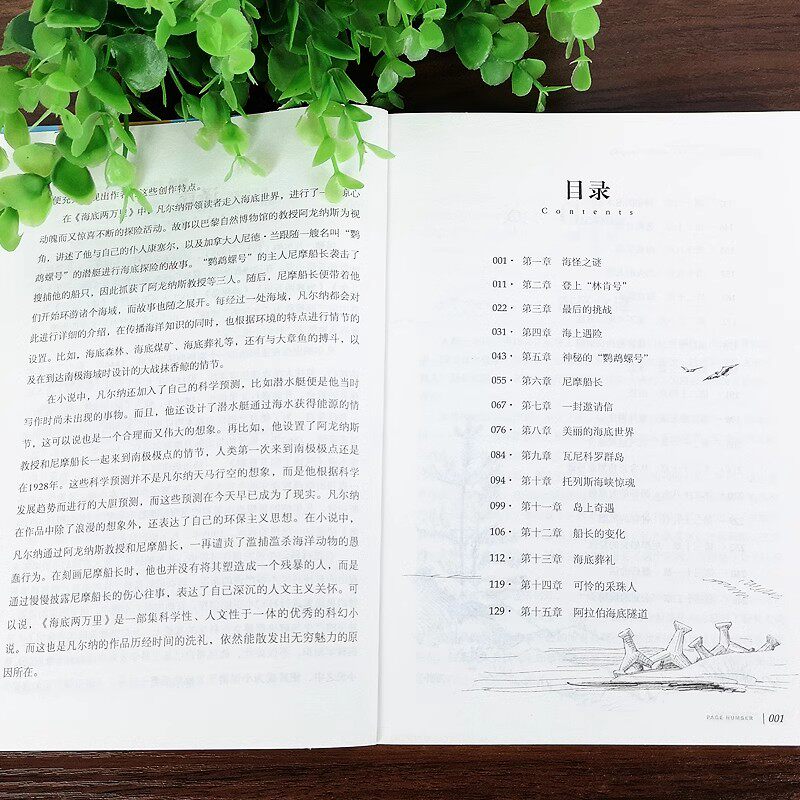 出作
这些创作特点。
在《海底两万里》中，凡尔纳带领读者走入海底世界，进行了一
心
动魄而又惊喜不断的探险活动。故事以巴黎自然博物馆的教授阿龙纳斯为视
角，讲述了他与自己的仆人康塞尔，以及加拿大人尼德·兰跟随一艘名叫“鹦
鹉螺号”的潜艇进行海底探险的故事。“鹦鹉螺号”的主人尼摩船长袭击了
搜捕他的船只，因此抓获了阿龙纳斯教授等三人。随后，尼摩船长便带着他
们开始环游诸个海域，而故事也随之展开。每经过一处海域，凡尔纳都会对
此进行详细的介绍，在传播海洋知识的同时，也根据环境的特点进行情节的
设置。比如，海底森林、海底煤矿、海底葬礼等，还有与大章鱼的搏斗，以
及在到达南极海域时设计的大战抹香鲸的情节。
在小说中，凡尔纳还加入了自己的科学预测，比如潜水艇便是他当时
写作时尚未出现的事物。而且，他还设计了潜水艇通过海水获得能源的情
节，这可以说也是一个合理而又伟大的想象。再比如，他设置了阿龙纳斯
教授和尼摩船长一起来到南极极点的情节，人类第一次来到南极极点还是
在1928年。这些科学预测并不是凡尔纳天马行空的想象，而是他根据科学
发展趋势而进行的大胆预测，而这些预测在今天早已成为了现实。凡尔纳
在作品中除了浪漫的想象外，还表达了自己的环保主义思想。在小说中，
凡尔纳通过阿龙纳斯教授和尼摩船长，一再谴责了滥捕滥杀海洋动物的愚
蠢行为。在刻画尼摩船长时，他也并没有将其塑造成一个残暴的人，而是
通过慢慢披露尼摩船长的伤心往事，表达了自己深沉的人文主义关怀。可
以说，《海底两万里》是一部集科学性、人文性于一体的优秀的科幻小
说。而这也是凡尔纳的作品历经时间的洗礼，依然能散发出无穷魅力的原
因所在。
目录
Contents
001· 第一章 海怪之谜
011· 第二章 登上“林肯号”
022· 第三章 最后的挑战
031· 第四章 海上遇险
043· 第五章 神秘的“鹦鹉螺号”
055· 第六章 尼摩船长
067· 第七章 一封邀请信
076· 第八章 美丽的海底世界
084· 第九章 瓦尼科罗群岛
094· 第十章 托列斯海峡惊魂
099· 第十一章 岛上奇遇
106· 第十二章 船长的变化
112· 第十三章 海底葬礼
119· 第十四章 可怜的采珠人
129· 第十五章 阿拉伯海底隧道
PAGE NUMBER | 001